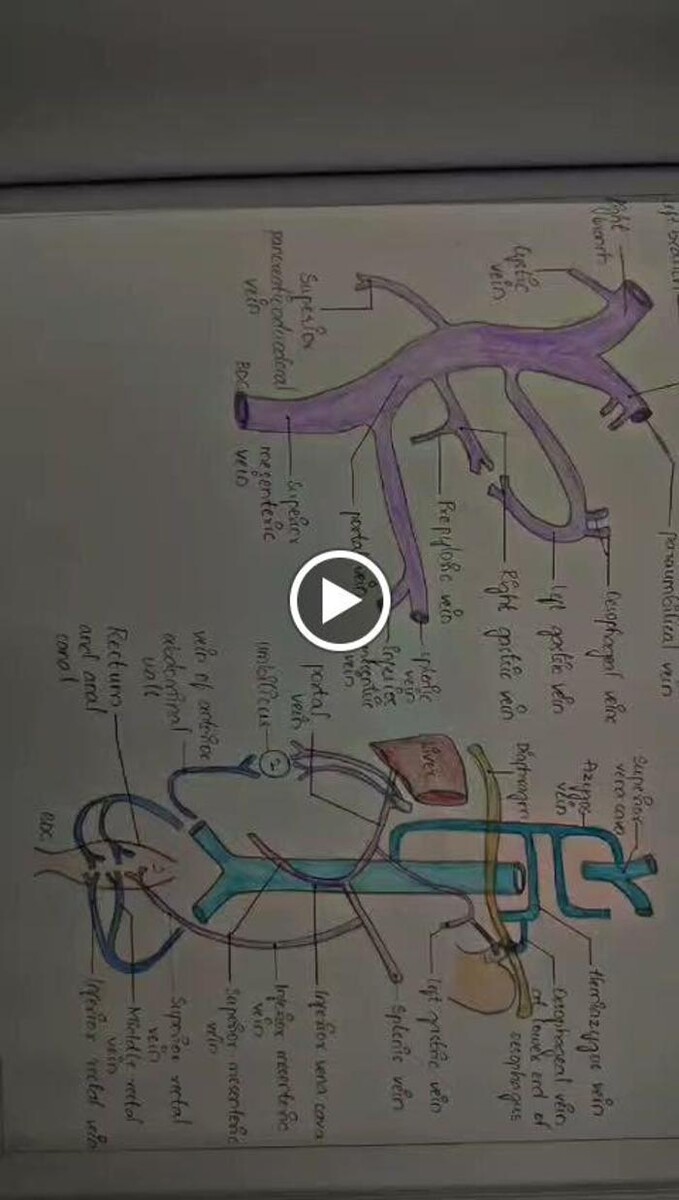 right
branch
Cystic
vein
Superior
pancreaticoduodenal
vein
BDC
Superior
mesenteric
vein
portal vein
splenic
vein
Prepyloric vein
Right gastric vein
left gastric vein
Oesophageal veins
paraumbilical vein
Superior
vena cava
Azygos
vein
Diaphragm
Liver
portal
vein
umbilicus
vein of anterior
abdominal
wall
Rectum
and anal
canal
BDC
Hemiazygos vein
Oesophageal vein
of lower end of
oesophagus
left gastric vein
Splenic vein
Inferior vena cava
Inferior mesenteric
vein
Superior mesenteric
vein
Superior rectal
vein
Middle rectal
vein
Inferior rectal vein